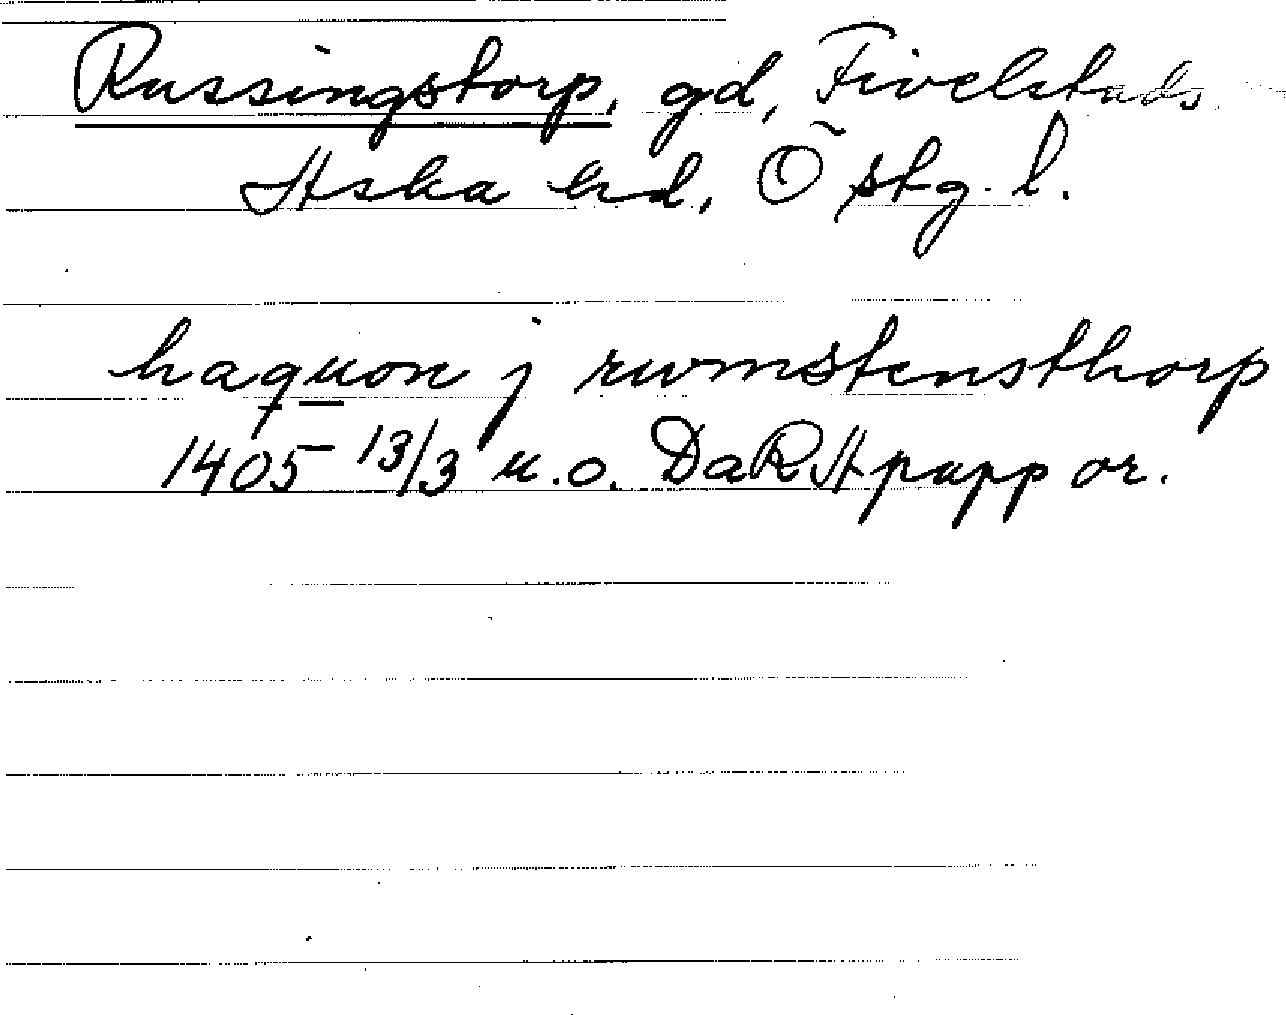 Russingstorp, gd, Fivelstads
Aska hd, Östg. l.
haquon j rwmstensthorp
1405 13/3 u.o. DaRApapp or.